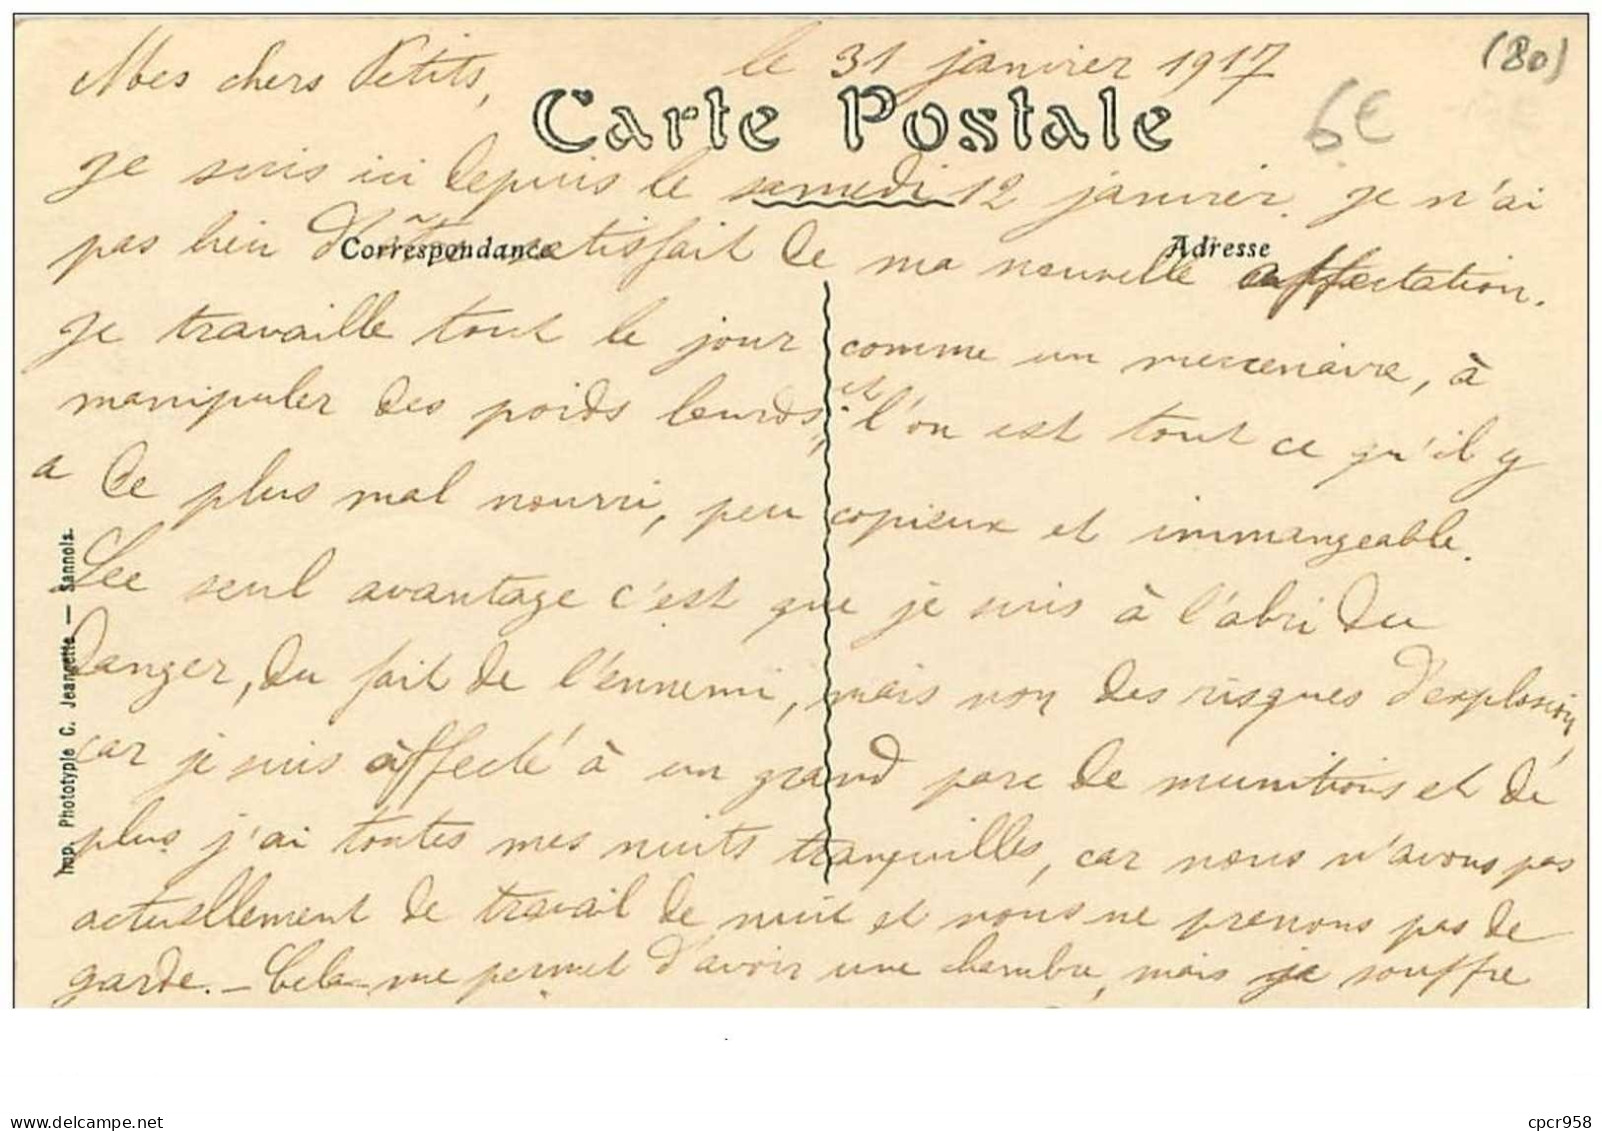 (80)
Mes chers Petits,
le 31 janvier 1917
Carte Postale
6€
je suis ici depuis le samedi 12 janvier. je n'ai
pas lieu d'être satisfait de ma nouvelle affectation.
Correspondance
Adresse
je travaille tout le jour comme un mercenaire, à
manipuler des poids lourds, et l'on est tout ce qu'il y
a de plus mal nourri, peu copieux et immangeable.
Le seul avantage c'est que je suis à l'abri du
danger, du fait de l'ennemi, mais non des risques d'explosion,
car je suis affecté à un grand parc de munitions et de
plus j'ai toutes mes nuits tranquilles, car nous n'avons pas
actuellement de travail de nuit et nous ne prenons pas de
garde. — Cela me permet d'avoir une chambre, mais je souffre
Imp. Phototypie C. Jeangette — Sannois.
delcampe.net
cpcr958